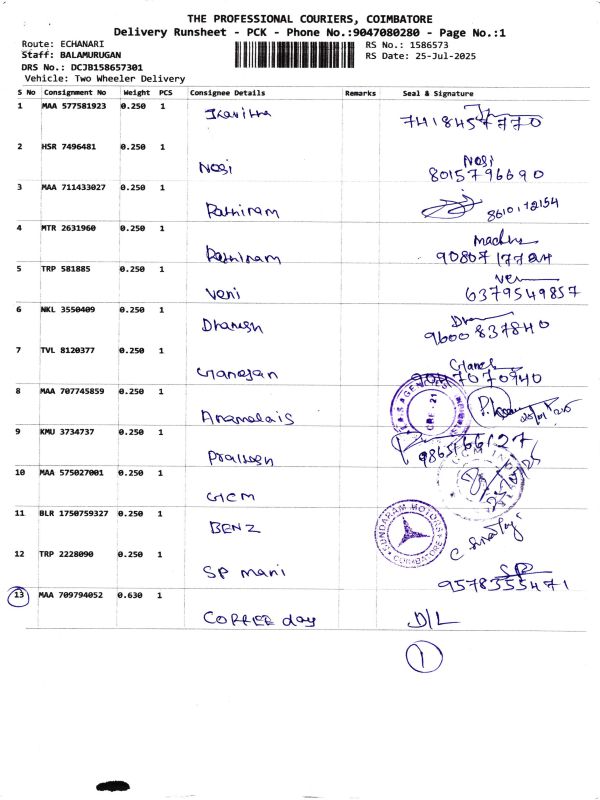 THE PROFESSIONAL COURIERS, COIMBATORE
Delivery Runsheet - PCK - Phone No.:9047080280 - Page No.:1
Route: ECHANARI
RS No.: 1586573
Staff: BALAMURUGAN
RS Date: 25-Jul-2025
DRS No.: DCJB158657301
Vehicle: Two Wheeler Delivery
S No Consignment No Weight PCS Consignee Details Remarks Seal & Signature
1 MAA 577581923 0.250 1
7418457770
2 HSR 7496481 0.250 1
Nagi Nagi
8015796690
3 MAA 711433027 0.250 1
Pathiram 8610172154
4 MTR 2631960 0.250 1
Pathiram
5 TRP 581885 0.250 1
Veni
6379549857
6 NKL 3550409 0.250 1
Dhanush
9600837840
7 TVL 8120377 0.250 1
Ganesan Ganesh
9047070940
8 MAA 707745859 0.250 1
Annamalais
9 KMU 3734737 0.250 1
Prakash 9865166127
10 MAA 575027001 0.250 1
GCM
11 BLR 1750759327 0.250 1
BENZ
SUNDARAM MOTORS
COIMBATORE
12 TRP 2228090 0.250 1
SP mani SP
9578355471
13 MAA 709794052 0.630 1
COFFEE day D/L
1